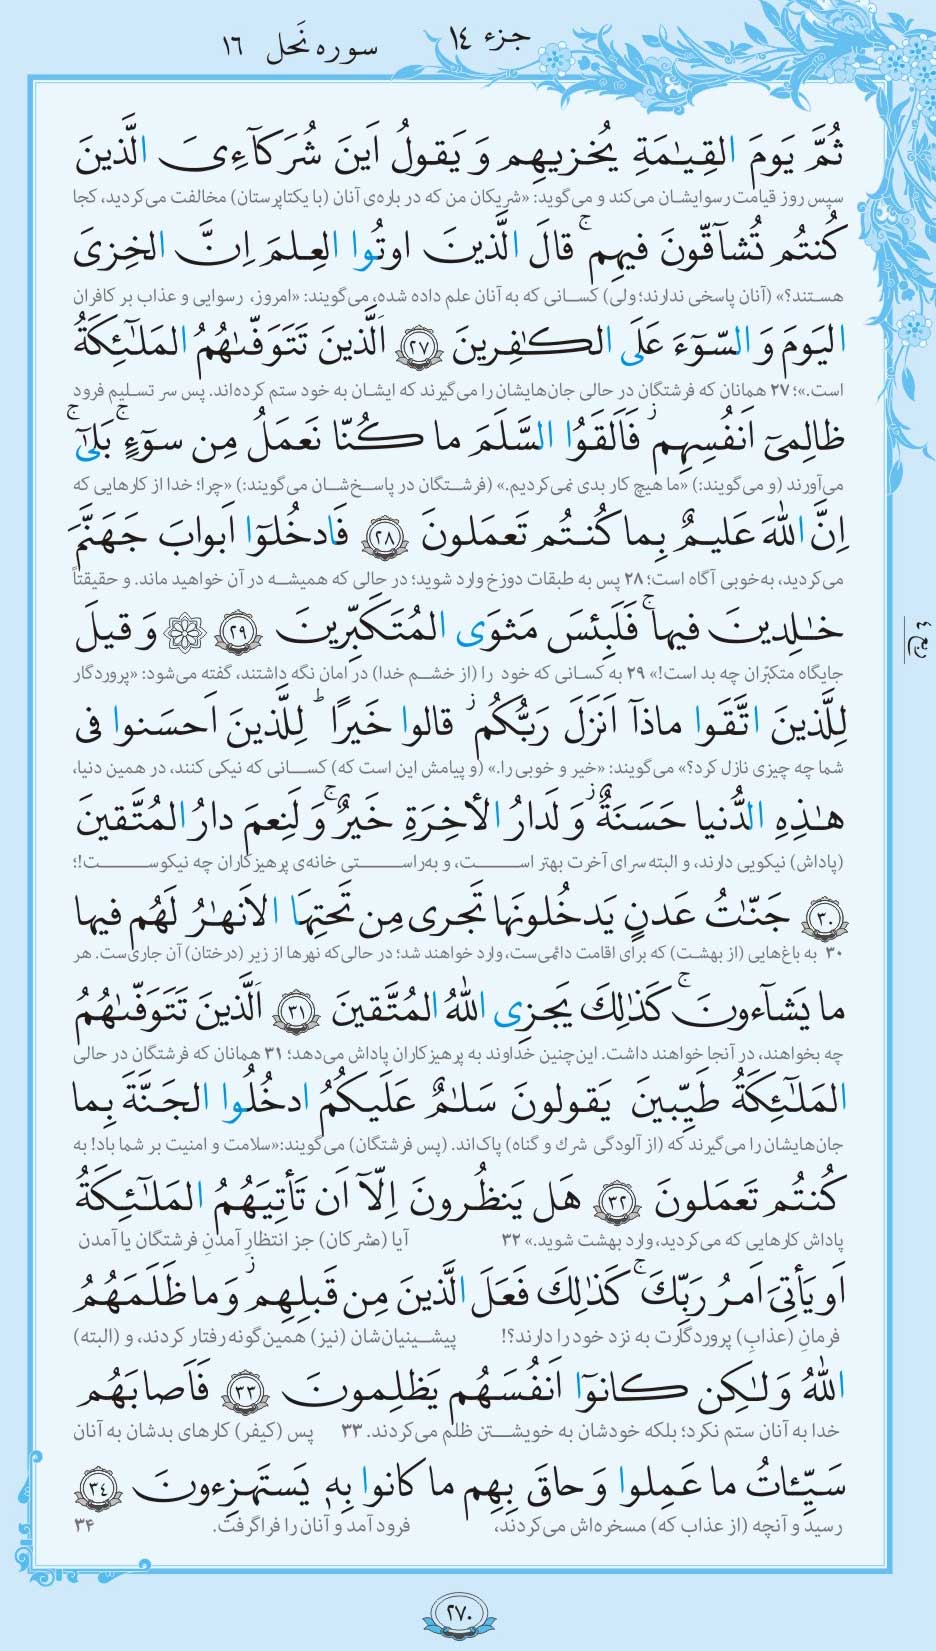 جزء ١٤
سوره نَحل ١٦
ثُمَّ يَومَ القِيٰمَةِ يُخزيهِم وَ يَقولُ اَينَ شُرَكآءِیَ الَّذينَ
سپس روز قیامت رسوایشان می‌کند و می‌گوید: «شریکان من که در باره‌ی آنان (با یکتاپرستان) مخالفت می‌کردید، کجا
كُنتُم تُشآقّونَ فيهِم ۚ قالَ الَّذينَ اوتُوا العِلمَ اِنَّ الخِزیَ
هستند؟» (آنان پاسخی ندارند؛ ولی) کسانی که به آنان علم داده شده، می‌گویند: «امروز، رسوایی و عذاب بر کافران
اليَومَ وَ السّوٓءَ عَلَی الكٰفِرينَ ﴿٢٧﴾ اَلَّذينَ تَتَوَفّىٰهُمُ المَلٰٓئِكَةُ
است.»؛ ۲۷ همانان که فرشتگان در حالی جان‌هایشان را می‌گیرند که ایشان به خود ستم کرده‌اند. پس سر تسلیم فرود
ظالِمیٓ اَنفُسِهِم ۖ فَاَلقَوُا السَّلَمَ ما كُنّا نَعمَلُ مِن سوٓءٍ ۚ بَلیٰٓ ۚ
می‌آورند (و می‌گویند:) «ما هیچ کار بدی نمی‌کردیم.» (فرشتگان در پاسخ‌شان می‌گویند:) «چرا؛ خدا از کارهایی که
اِنَّ اللهَ عَليمٌ بِما كُنتُم تَعمَلونَ ﴿٢٨﴾ فَادخُلوٓا اَبوابَ جَهَنَّمَ
می‌کردید، به‌خوبی آگاه است؛ ۲۸ پس به طبقات دوزخ وارد شوید؛ در حالی که همیشه در آن خواهید ماند. و حقیقتاً
خٰلِدينَ فيها ۚ فَلَبِئسَ مَثوَی المُتَكَبِّرينَ ﴿٢٩﴾ ۞ وَ قيلَ
جایگاه متکبّران چه بد است!» ۲۹ به کسانی که خود را (از خشم خدا) در امان نگه داشتند، گفته می‌شود: «پروردگار
لِلَّذينَ اتَّقَوا ماذآ اَنزَلَ رَبُّكُم ۖ قالوا خَيرًا ۗ لِلَّذينَ اَحسَنوا فی
شما چه چیزی نازل کرد؟» می‌گویند: «خیر و خوبی را.» (و پیامش این است که) کسانی که نیکی کنند، در همین دنیا،
هٰذِهِ الدُّنيا حَسَنَةٌ ۖ وَ لَدارُ الأخِرَةِ خَيرٌ ۚ وَ لَنِعمَ دارُ المُتَّقينَ
(پاداش) نیکویی دارند، و البته سرای آخرت بهتر است، و به‌راستی خانه‌ی پرهیزکاران چه نیکوست!؛
﴿٣٠﴾ جَنّٰتُ عَدنٍ يَدخُلونَها تَجری مِن تَحتِهَا الاَنهٰرُ لَهُم فيها
۳۰ به باغ‌هایی (از بهشت) که برای اقامت دائمی‌ست، وارد خواهند شد؛ در حالی‌که نهرها از زیر (درختان) آن جاری‌ست. هر
ما يَشآءونَ ۚ كَذٰلِكَ يَجزِی اللهُ المُتَّقينَ ﴿٣١﴾ اَلَّذينَ تَتَوَفّىٰهُمُ
چه بخواهند، در آنجا خواهند داشت. این‌چنین خداوند به پرهیزکاران پاداش می‌دهد؛ ۳۱ همانان که فرشتگان در حالی
المَلٰٓئِكَةُ طَيِّبينَ يَقولونَ سَلٰمٌ عَلَيكُمُ ادخُلُوا الجَنَّةَ بِما
جان‌هایشان را می‌گیرند که (از آلودگی شرك و گناه) پاک‌اند. (پس فرشتگان) می‌گویند:«سلامت و امنیت بر شما باد! به
كُنتُم تَعمَلونَ ﴿٣٢﴾ هَل يَنظُرونَ اِلّآ اَن تَأتِيَهُمُ المَلٰٓئِكَةُ
پاداش کارهایی که می‌کردید، وارد بهشت شوید.» ۳۲ آیا (مشرکان) جز انتظارِ آمدنِ فرشتگان یا آمدن
اَو يَأتِیَ اَمرُ رَبِّكَ ۚ كَذٰلِكَ فَعَلَ الَّذينَ مِن قَبلِهِم ۖ وَ ما ظَلَمَهُمُ
فرمانِ (عذابِ) پروردگارت به نزد خود را دارند؟! پیشینیان‌شان (نیز) همین‌گونه رفتار کردند، و (البته)
اللهُ وَ لٰكِن كانوٓا اَنفُسَهُم يَظلِمونَ ﴿٣٣﴾ فَاَصابَهُم
خدا به آنان ستم نکرد؛ بلکه خودشان به خویشتن ظلم می‌کردند. ۳۳ پس (کیفر) کارهای بدشان به آنان
سَيِّئاتُ ما عَمِلوا وَ حاقَ بِهِم ما كانوا بِهٖ يَستَهزِءونَ ﴿٣٤﴾
رسید و آنچه (از عذاب که) مسخره‌اش می‌کردند، فرود آمد و آنان را فراگرفت. ۳۴
ربع ٤
٢٧٠